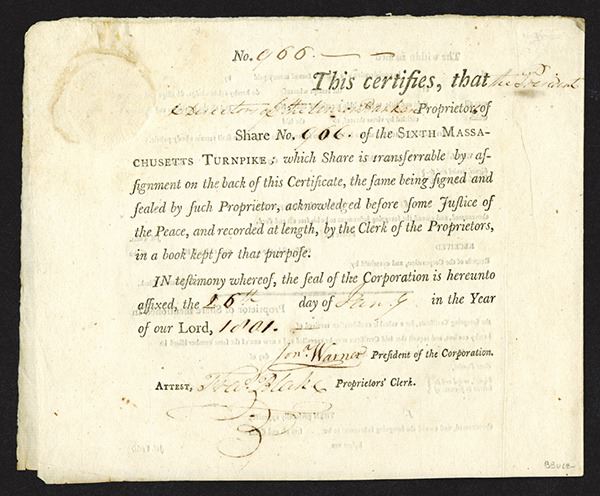 No. 966.
This certifies, that the President
& Directors of the Union Bank Proprietors of
Share No. 966. of the Sixth Massa-
chusetts Turnpike; which Share is transferrable by aſ-
ſignment on the back of this Certificate, the ſame being ſigned and
ſealed by ſuch Proprietor, acknowledged before ſome Juſtice of
the Peace, and recorded at length, by the Clerk of the Proprietors,
in a book kept for that purpoſe.
IN teſtimony whereof, the ſeal of the Corporation is hereunto
affixed, the 26th day of Jan.y in the Year
of our Lord, 1801.
Jon.a Warner President of the Corporation.
Attest, Blake Proprietors' Clerk.